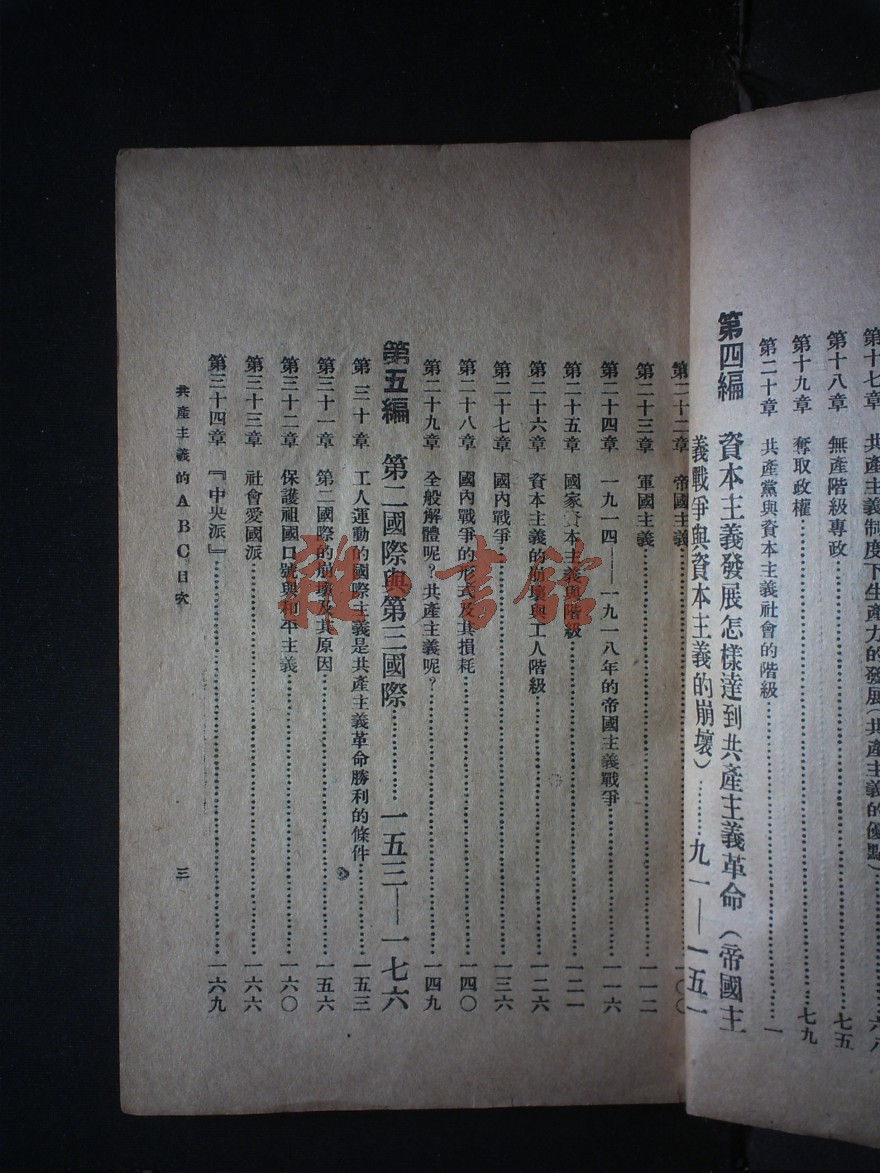 第十七章 共產主義制度下生產力的發展（共產主義的優點）……六八
第十八章 無產階級專政……七五
第十九章 奪取政權……七九
第二十章 共產黨與資本主義社會的階級……
第四編 資本主義發展怎樣達到共產主義革命（帝國主
義戰爭與資本主義的崩壞）……九一——一五一
第二十二章 帝國主義……一〇〇
第二十三章 軍國主義……一一二
第二十四章 一九一四——一九一八年的帝國主義戰爭……一一六
第二十五章 國家資本主義與階級……一二一
第二十六章 資本主義的崩壞與工人階級……一二六
第二十七章 國內戰爭……一三六
第二十八章 國內戰爭的形式及其損耗……一四〇
第二十九章 全般解體呢？共產主義呢？……一四九
第五編 第二國際與第三國際……一五三——一七六
第三十章 工人運動的國際主義是共產主義革命勝利的條件……一五三
第三十一章 第二國際的崩壞及其原因……一五六
第三十二章 保護祖國口號與和平主義……一六〇
第三十三章 社會愛國派……一六六
第三十四章 『中央派』……一六九
共產主義的ABC目次 三
雜·書館